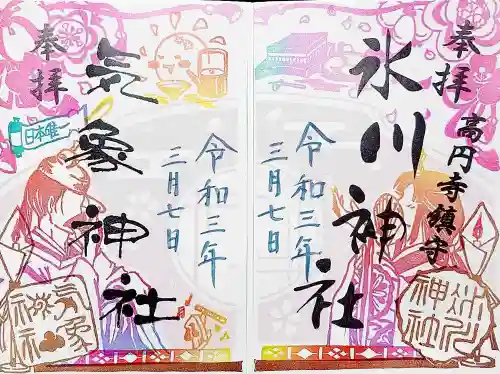 奉拝
高円寺鎮守
氷川神社
令和三年
三月七日
氷川神社
奉拝
日本唯一
気象神社
令和三年
三月七日
気象神社